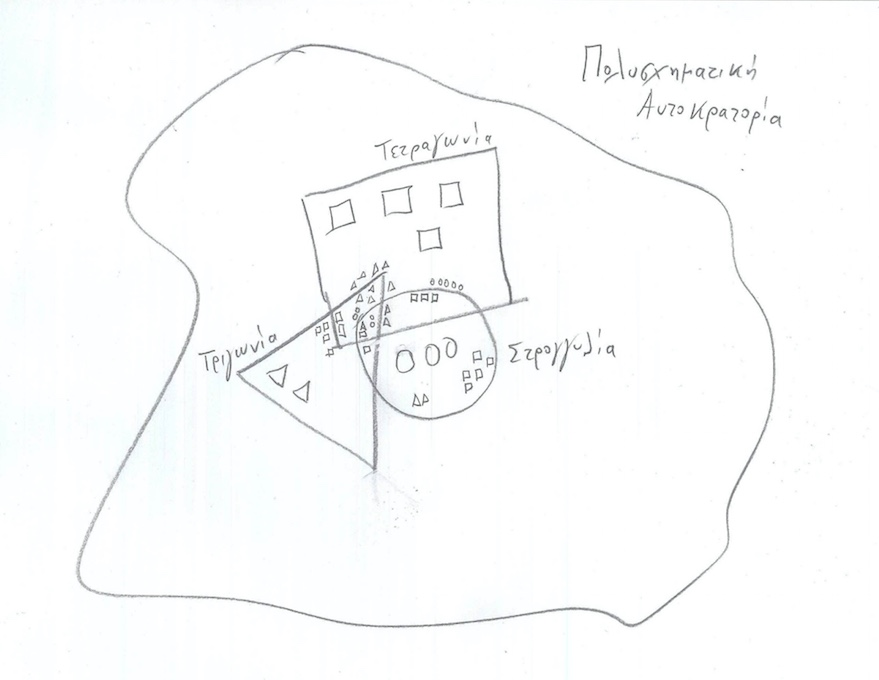 Πολυσχηματική
Αυτοκρατορία
Τετραγωνία
Τριγωνία
Στρογγυλία